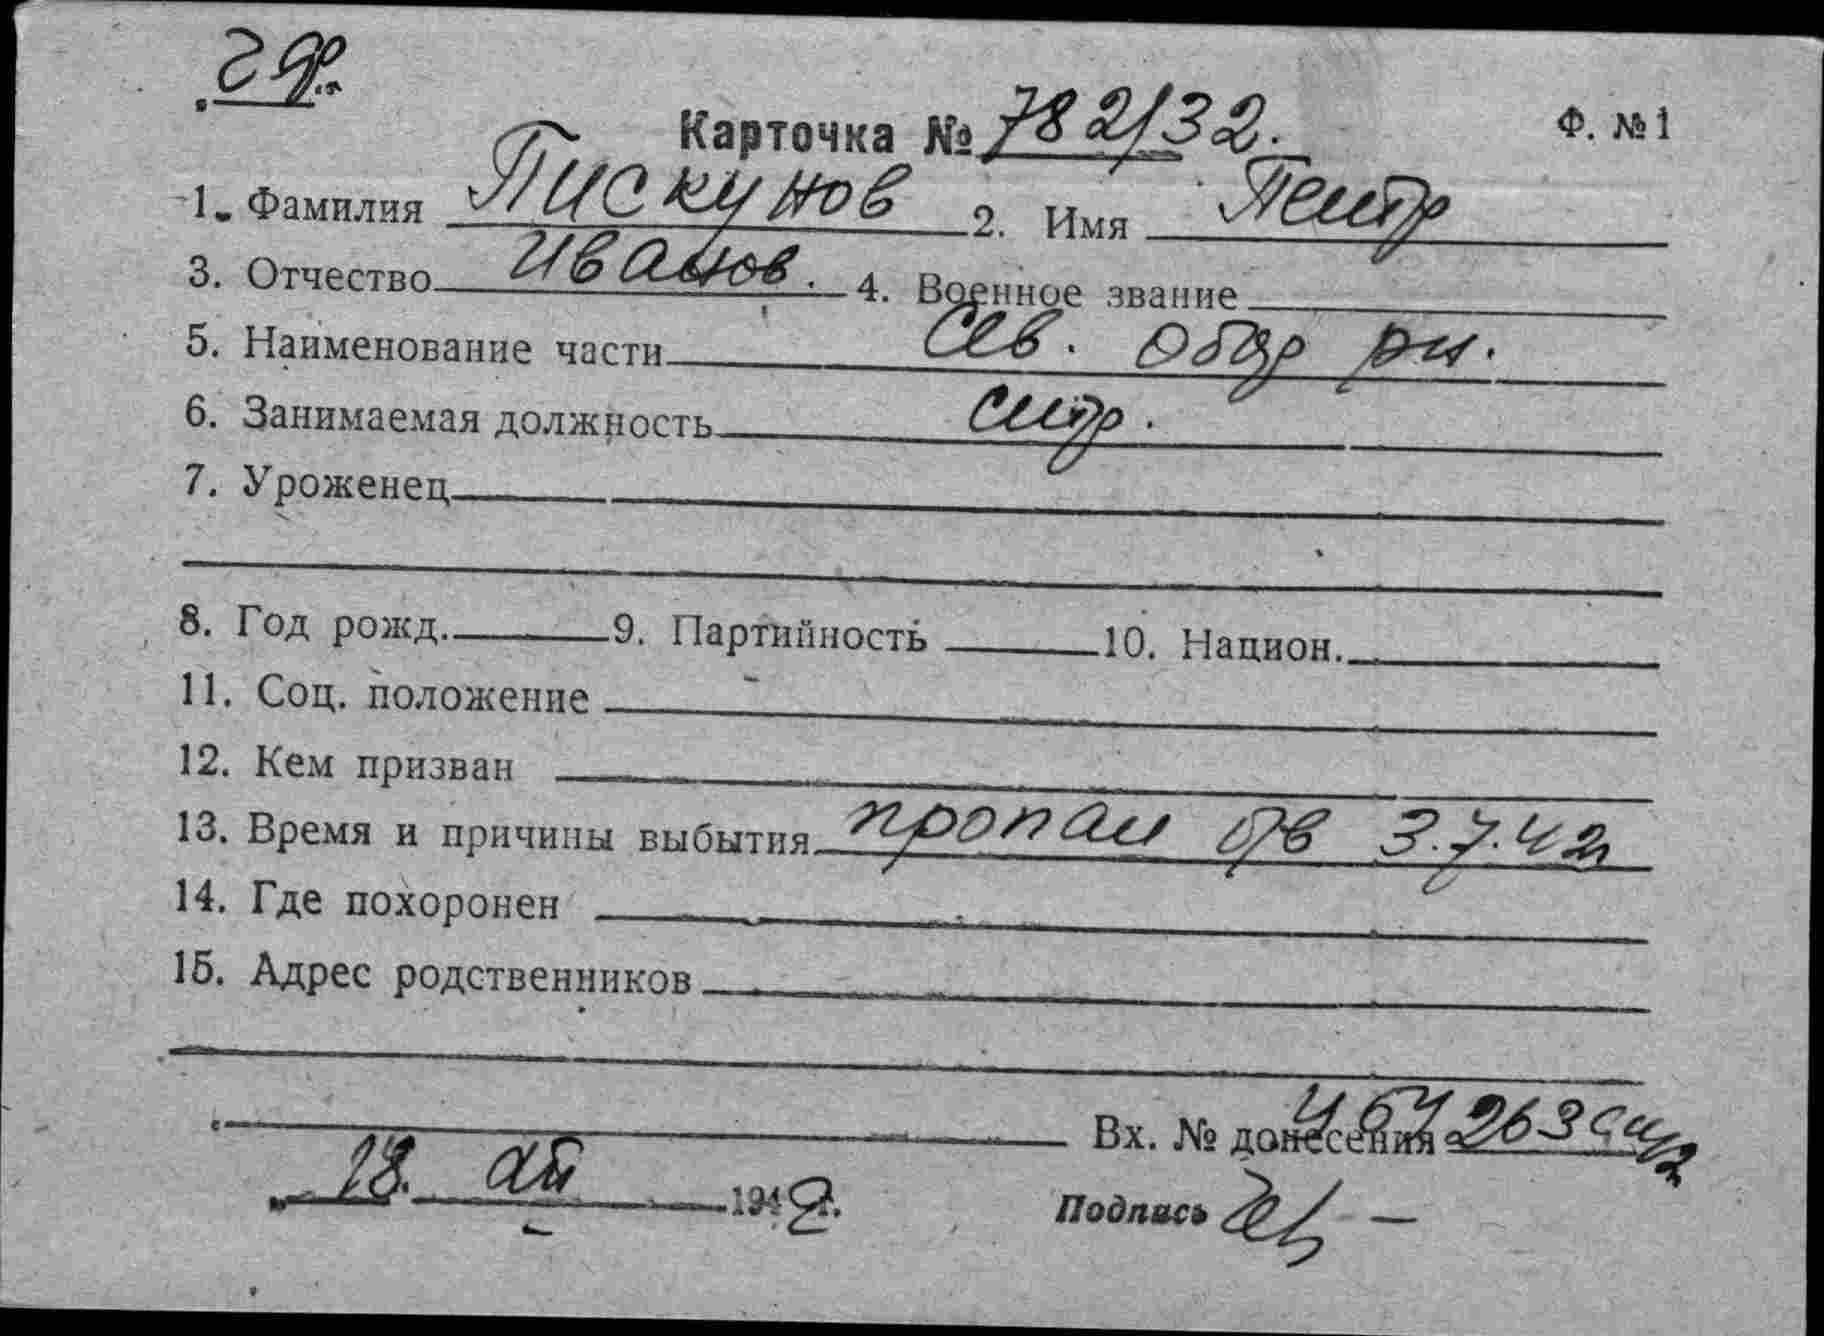 Карточка № 782/32. Ф. № 1
1. Фамилия Пискунов 2. Имя Петр
3. Отчество Иванов. 4. Военное звание
5. Наименование части Сев. обор рн.
6. Занимаемая должность стр.
7. Уроженец
8. Год рожд. 9. Партийность 10. Национ.
11. Соц. положение
12. Кем призван
13. Время и причины выбытия пропал б/в 3.7.42
14. Где похоронен
15. Адрес родственников
Вх. № донесения 263
18. 194 г.
Подпись